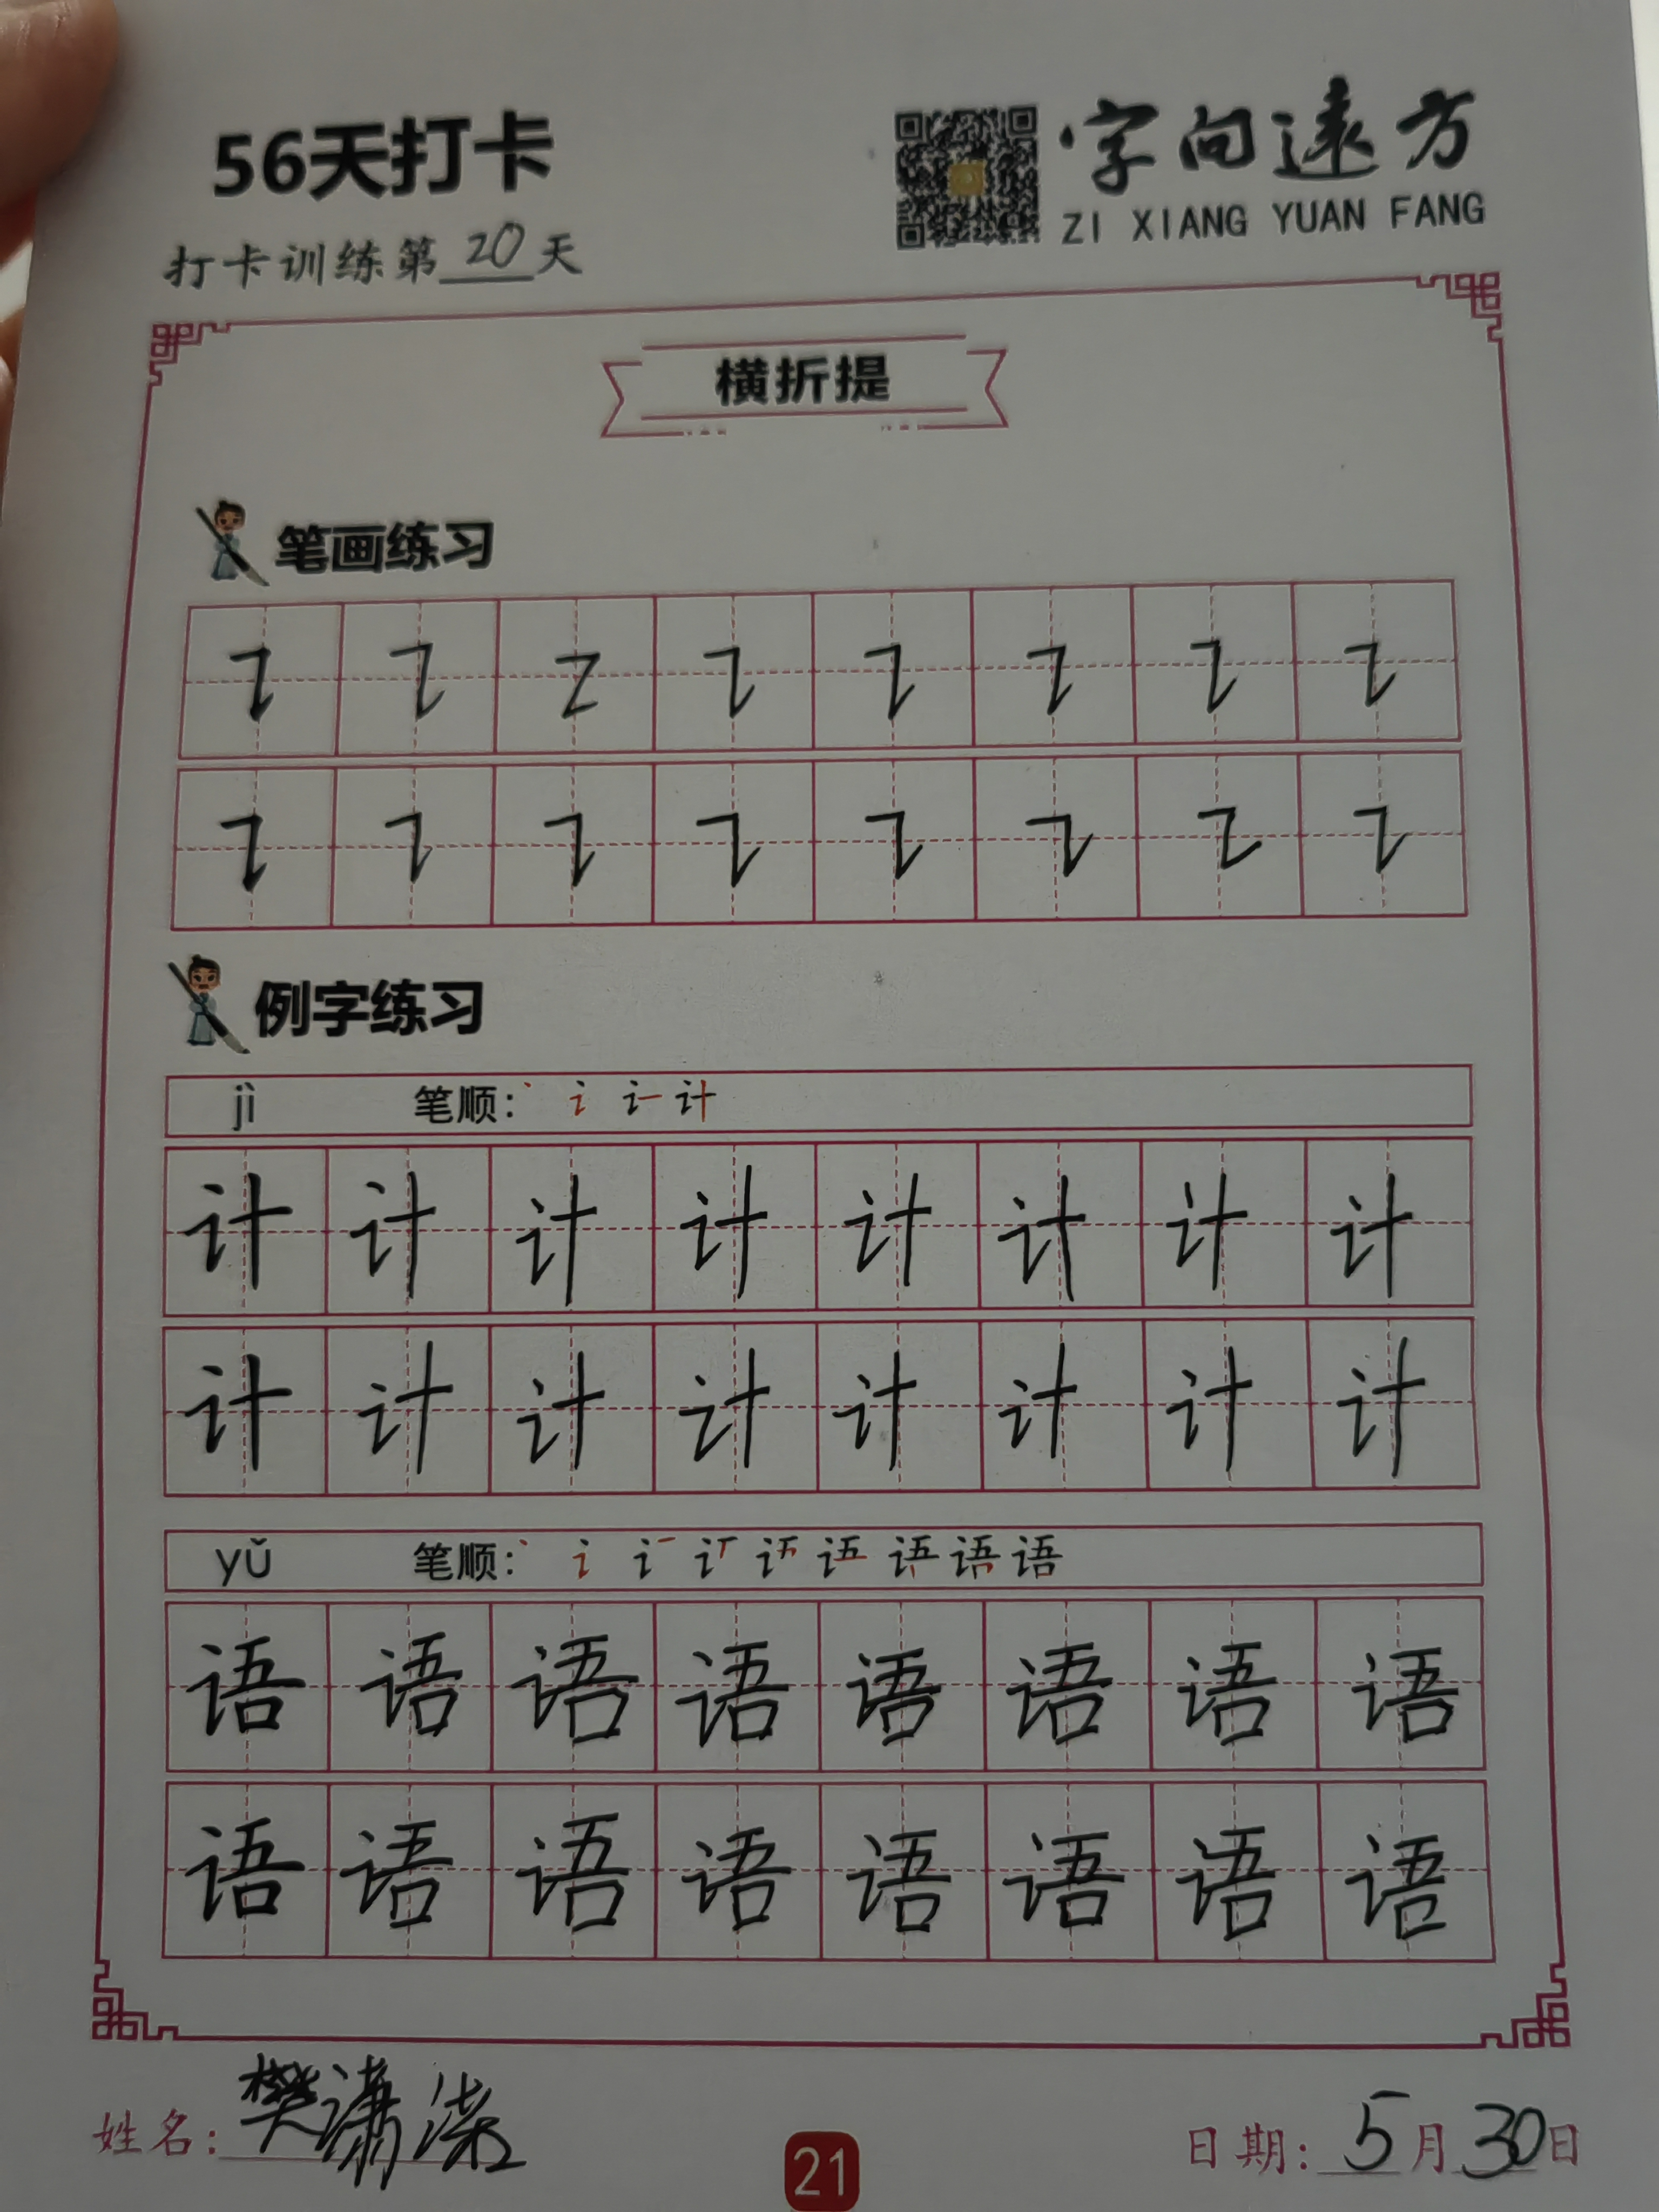 56天打卡
字向遠方
ZI XIANG YUAN FANG
打卡训练第20天
横折提
笔画练习
例字练习
jì 笔顺：
计 计 计 计 计 计 计 计
计 计 计 计 计 计 计 计
yǔ 笔顺： 语
语 语 语 语 语 语 语 语
语 语 语 语 语 语 语 语
姓名：樊潇
日期：5月30日
21